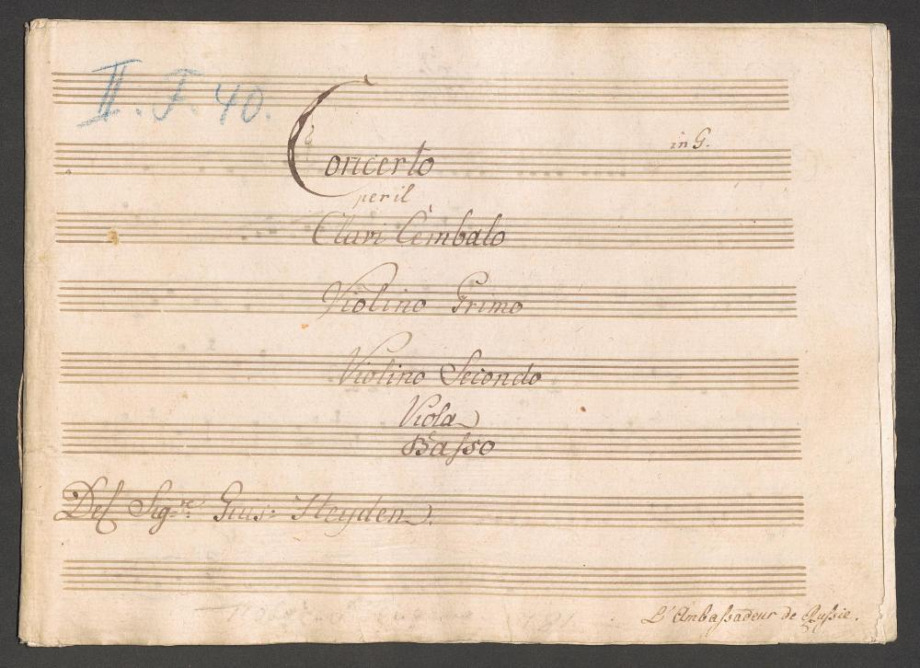 II. F. 40.
Concerto
in G.
per il
Clavi Cembalo
Violino Primo
Violino Secondo
Viola
Basso
Del Sig.re Gius: Heyden.
L'Ambassadeur de Russie.